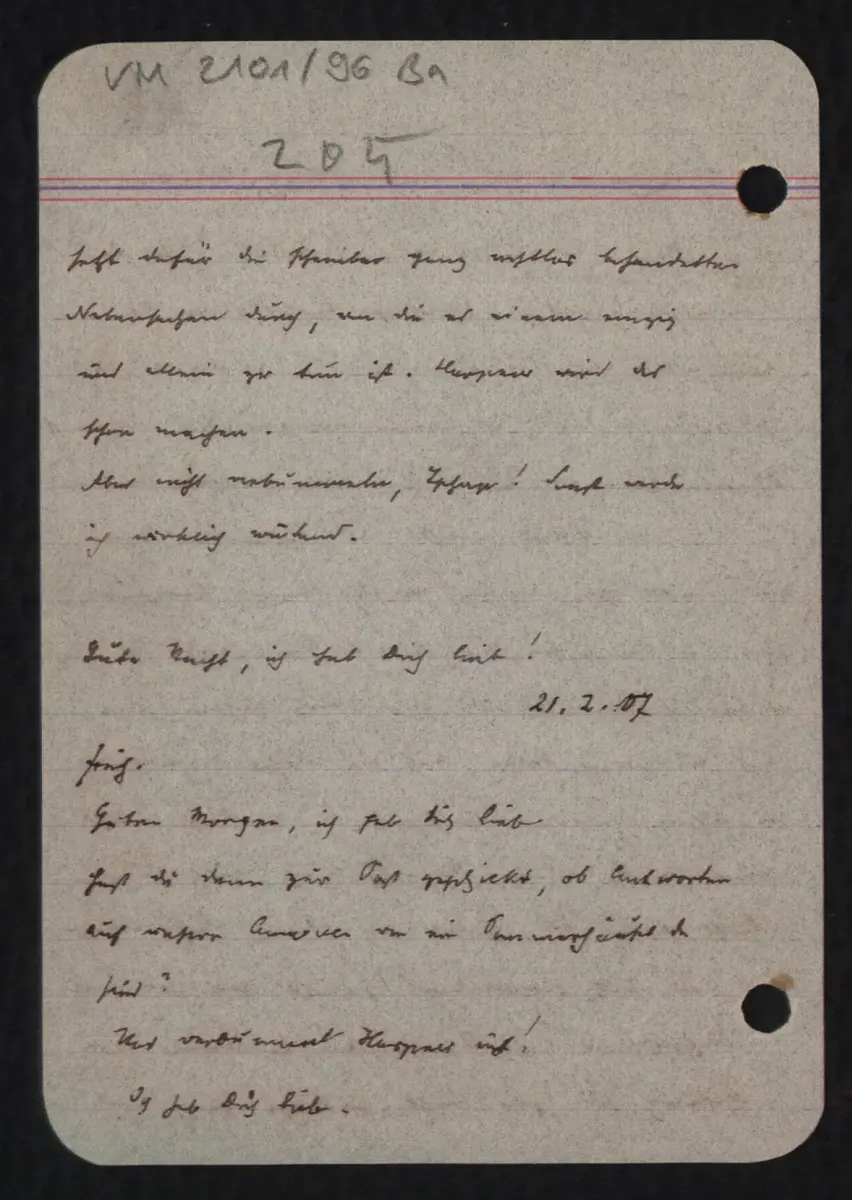 VM 2101/96 Ba
205
setzt dafür die scheinbar ganz achtlos behandelten
Nebensachen durch, um die es einem einzig
und allein zu tun ist. Harpner wird das
schon machen.
Aber nicht verbummeln, ! Sonst werde
ich wirklich wütend.
Gute Nacht, ich hab Dich lieb!
21. 2. 07
früh.
Guten Morgen, ich hab Dich lieb
Hast du denn zur Post geschickt, ob Antworten
auf unsere Annonce um ein Sommerhäusel da
sind?
Und verbummel Harpner nicht!
Ich hab Dich lieb.